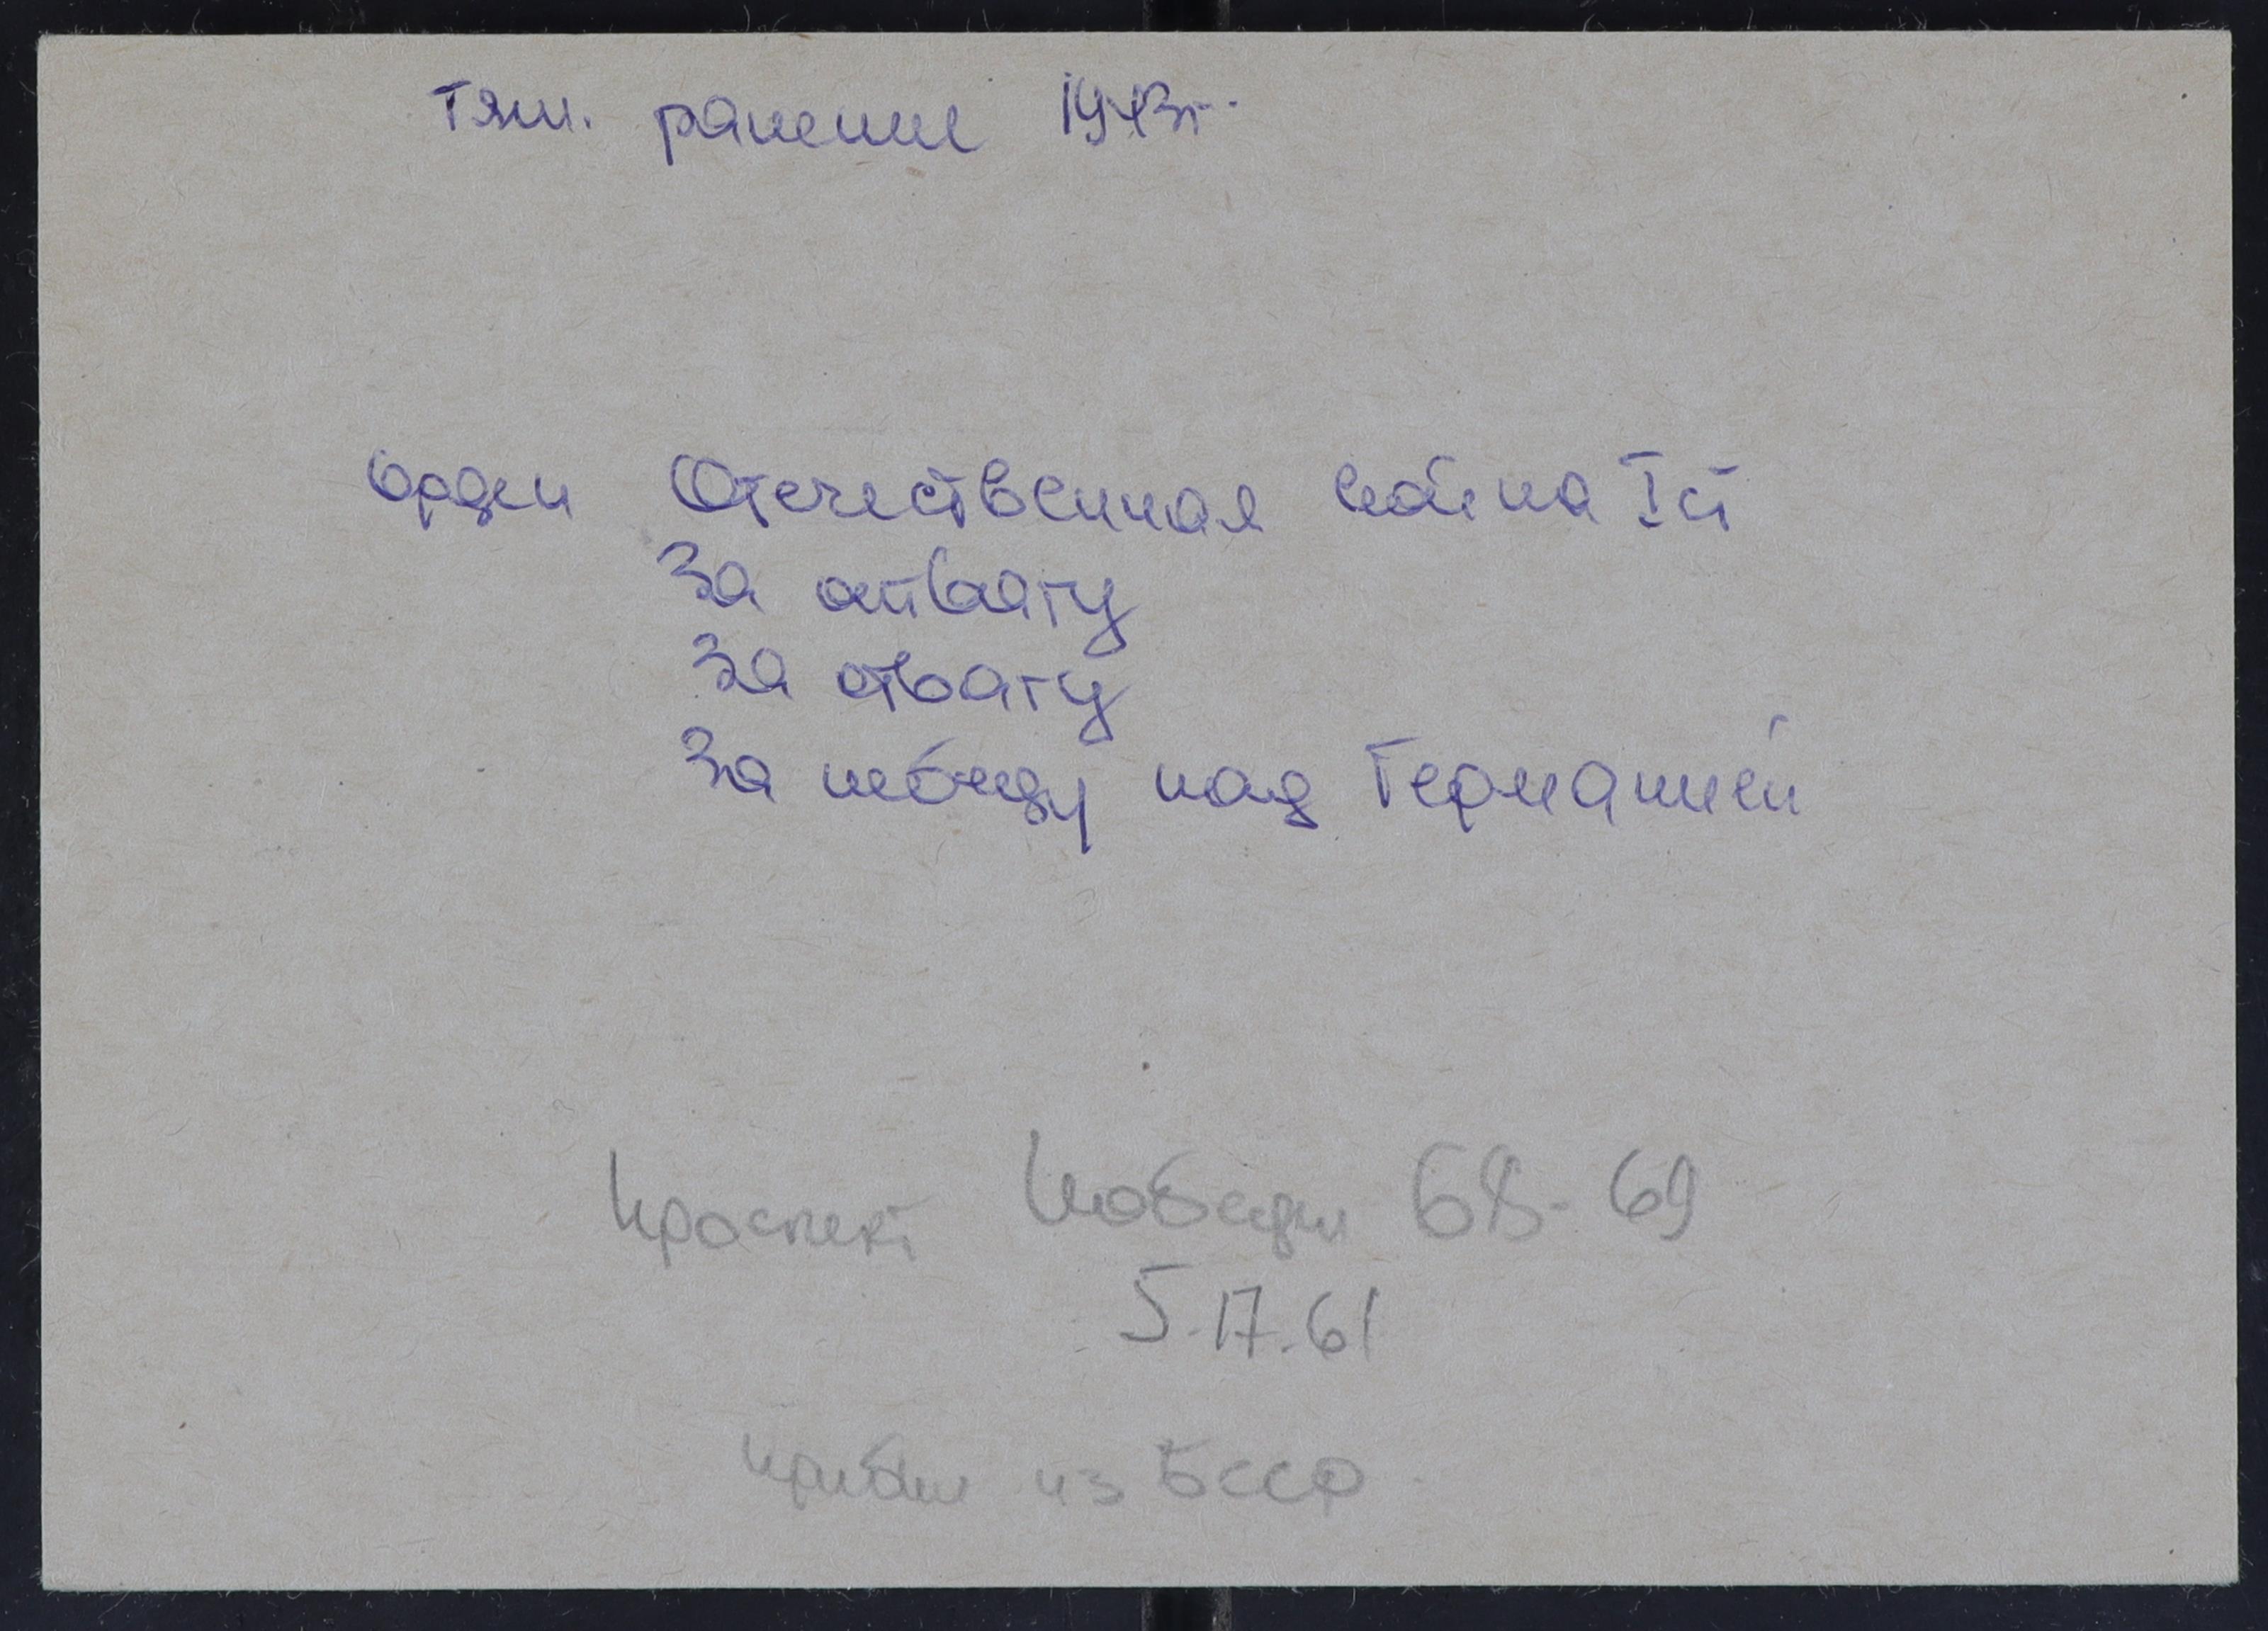 тяж. ранение 1943г.
орден Отечественная война I ст
За отвагу
За отвагу
За победу над Германией
проспект Победы 68-69
5.17.61
прибыл из БССР